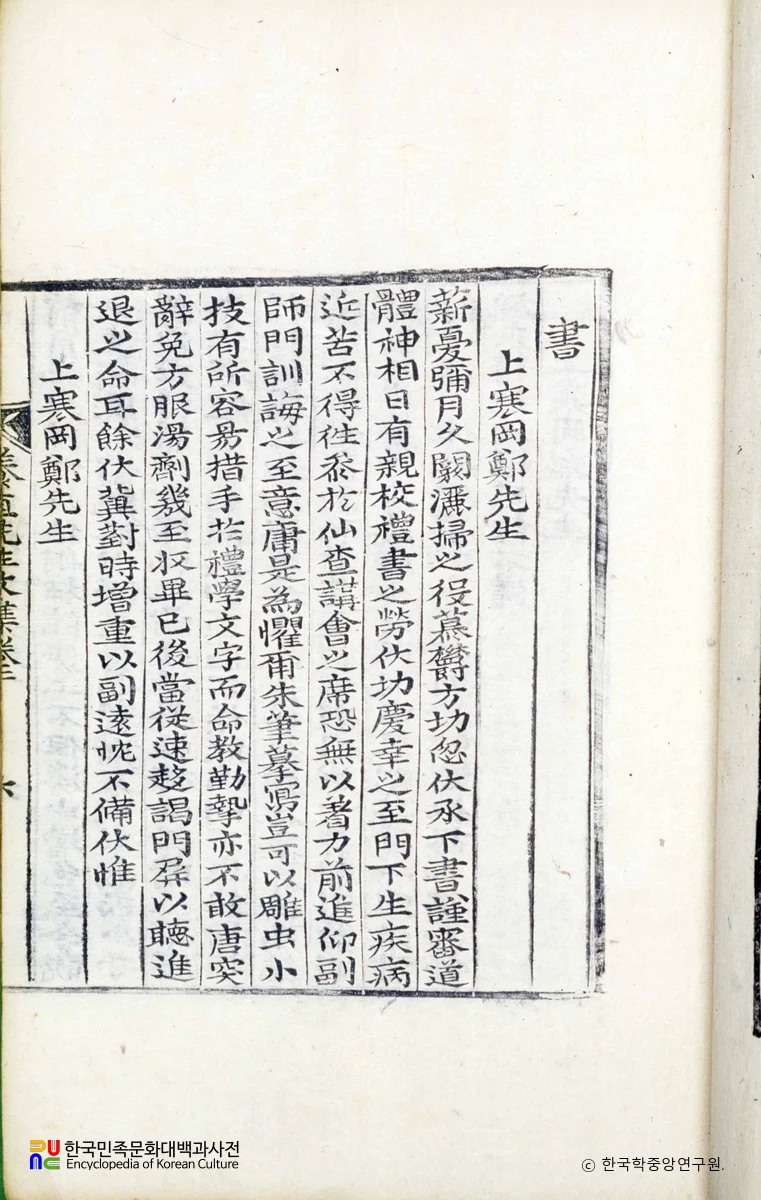 書
上寒岡鄭先生
薪憂彌月久闕灑掃之役慕欝方切忽伏承下書謹審道
體神相日有親校禮書之勞伏切慶幸之至門下生疾病
近苦不得徃叅於仙查講會之席恐無以着力前進仰副
師門訓誨之至意庸是為懼爾朱筆摹寫豈可以雕虫小
技有所容易措手於禮學文字而命教勤摯亦不敢唐突
辭免方服湯劑幾至収畢已後當從速趍謁門屛以聽進
退之命耳餘伏冀對時增重以副遠忱不備伏惟
上寒岡鄭先生
先生文集卷
한국민족문화대백과사전
Encyclopedia of Korean Culture
ⓒ 한국학중앙연구원.